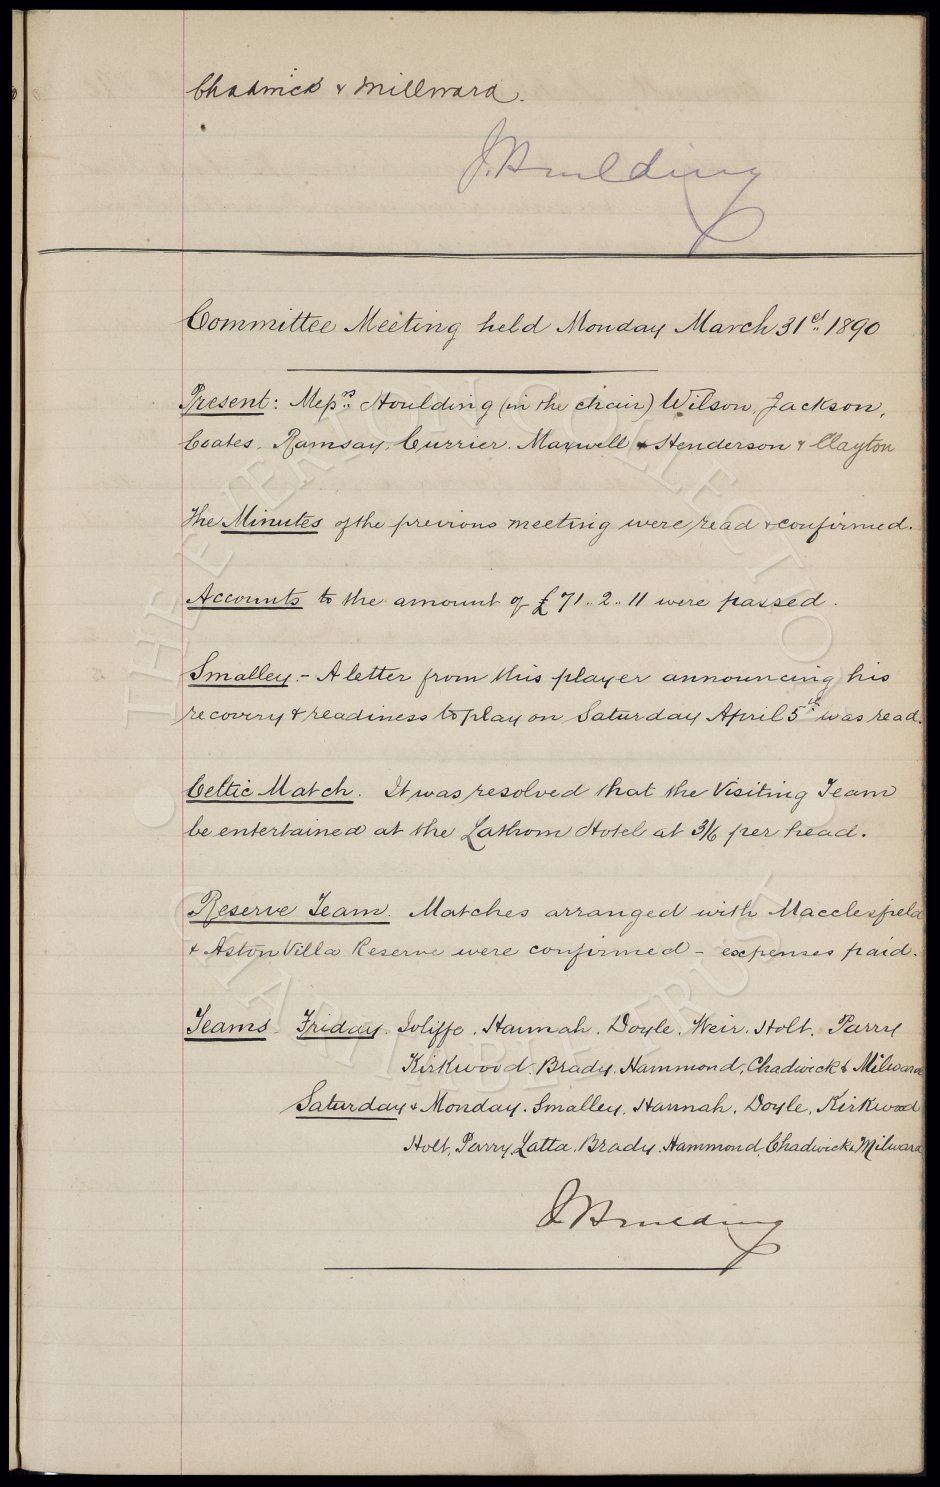 Chadwick & Millward.
J. Houlding
Committee Meeting held Monday March 31st 1890
Present: Messrs Houlding (in the chair) Wilson, Jackson,
Coates. Ramsay, Currier. Maxwell & Henderson & Clayton
The Minutes of the previous meeting were read & confirmed.
Accounts to the amount of £71..2..11 were passed.
Smalley.- A letter from this player announcing his
recovery & readiness to play on Saturday April 5th was read.
Celtic Match. It was resolved that the Visiting Team
be entertained at the Lathom Hotel at 3/6 per head.
Reserve Team. Matches arranged with Macclesfield
& Aston Villa Reserve were confirmed - expenses paid.
Teams Friday. Joliffe. Hannah. Doyle. Weir. Holt. Parry
Kirkwood. Brady. Hammond, Chadwick & Milward
Saturday & Monday. Smalley. Hannah. Doyle. Kirkwood
Holt. Parry. Latta. Brady. Hammond. Chadwick & Milward
J Houlding
THE EVERTON COLLECTION
CHARITABLE TRUST